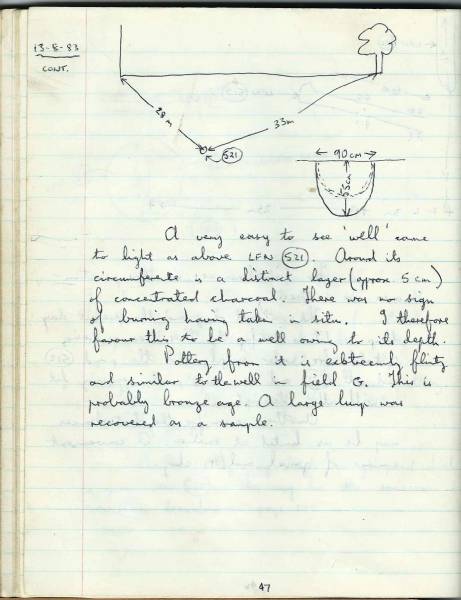 13-8-83
CONT.
28m
33m
521
90cm
55cm
A very easy to see 'well' came
to light as above LFN 521. Around its
circumference is a distinct layer (approx. 5cm)
of concentrated charcoal. There was no sign
of burning having taken in situ. I therefore
favour this to be a well owing to its depth.
Pottery from it is exbtreemly flinty
and similar to the well in field G. This is
probably bronze age. A large lump was
recovered as a sample.
47